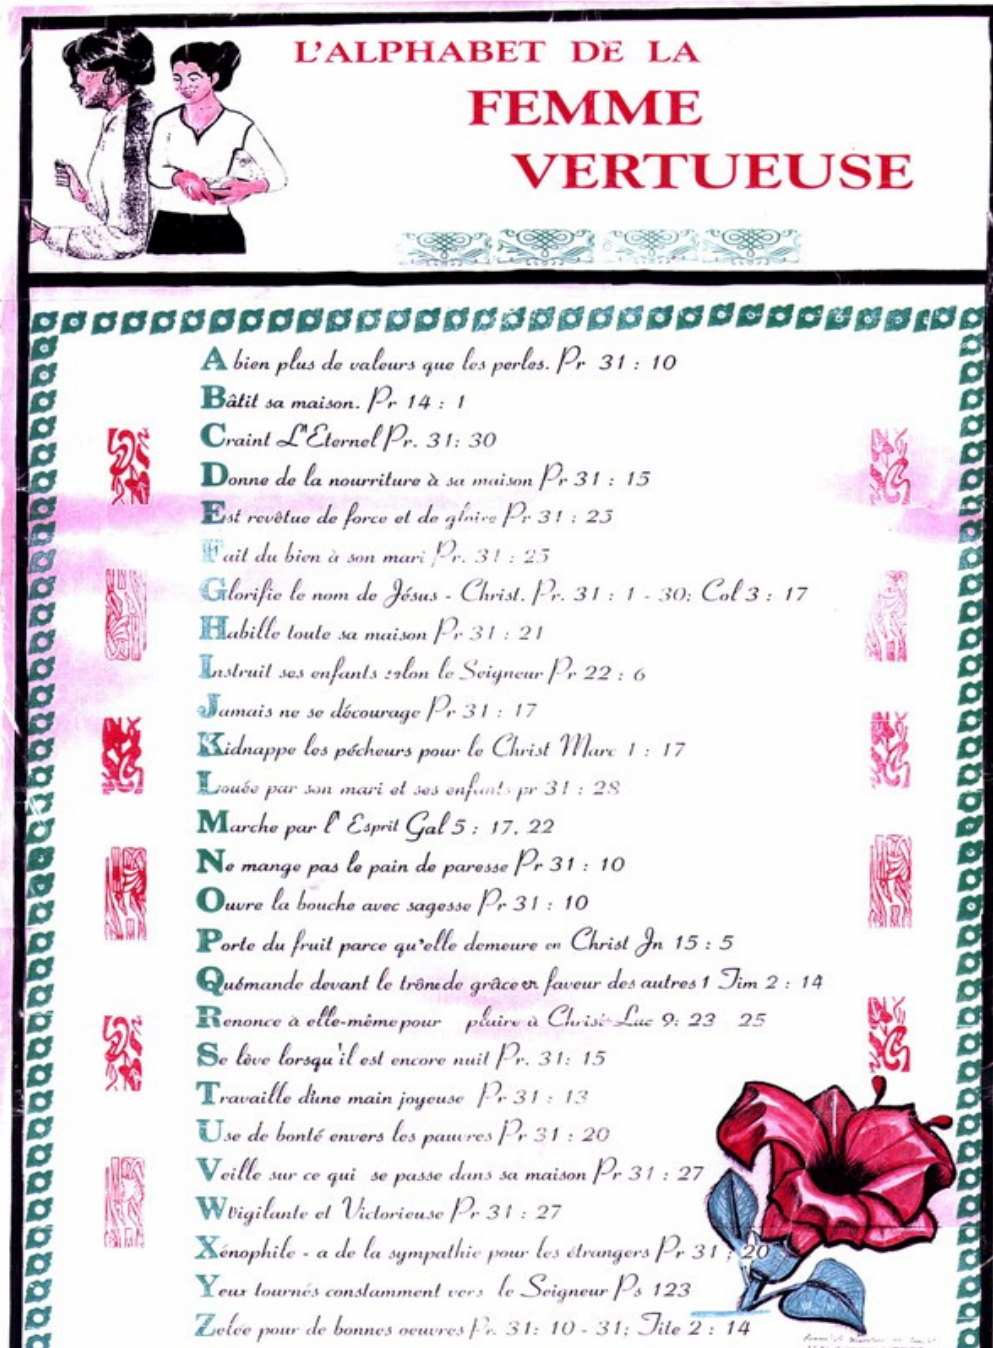 L'ALPHABET DE LA
FEMME
VERTUEUSE
A bien plus de valeurs que les perles. Pr 31 : 10
Bâtit sa maison. Pr 14 : 1
Craint L'Eternel Pr. 31: 30
Donne de la nourriture à sa maison Pr 31 : 15
Est revêtue de force et de gloire Pr 31 : 25
Fait du bien à son mari Pr. 31 : 25
Glorifie le nom de Jésus - Christ. Pr. 31 : 1 - 30; Col 3 : 17
Habille toute sa maison Pr 31 : 21
Instruit ses enfants selon le Seigneur Pr 22 : 6
Jamais ne se décourage Pr 31 : 17
Kidnappe les pécheurs pour le Christ Marc 1 : 17
Louée par son mari et ses enfants pr 31 : 28
Marche par l' Esprit Gal 5 : 17. 22
Ne mange pas le pain de paresse Pr 31 : 10
Ouvre la bouche avec sagesse Pr 31 : 10
Porte du fruit parce qu'elle demeure en Christ Jn 15 : 5
Quémande devant le trônede grâce en faveur des autres 1 Tim 2 : 14
Renonce à elle-même pour plaire à Christ Luc 9: 23 25
Se lève lorsqu'il est encore nuit Pr. 31: 15
Travaille d'une main joyeuse Pr 31 : 13
Use de bonté envers les pauvres Pr 31 : 20
Veille sur ce qui se passe dans sa maison Pr 31 : 27
Wvigilante et Victorieuse Pr 31 : 27
Xénophile - a de la sympathie pour les étrangers Pr 31 ; 20
Yeux tournés constamment vers le Seigneur Ps 123
Zelée pour de bonnes oeuvres Pr. 31: 10 - 31; Tite 2 : 14